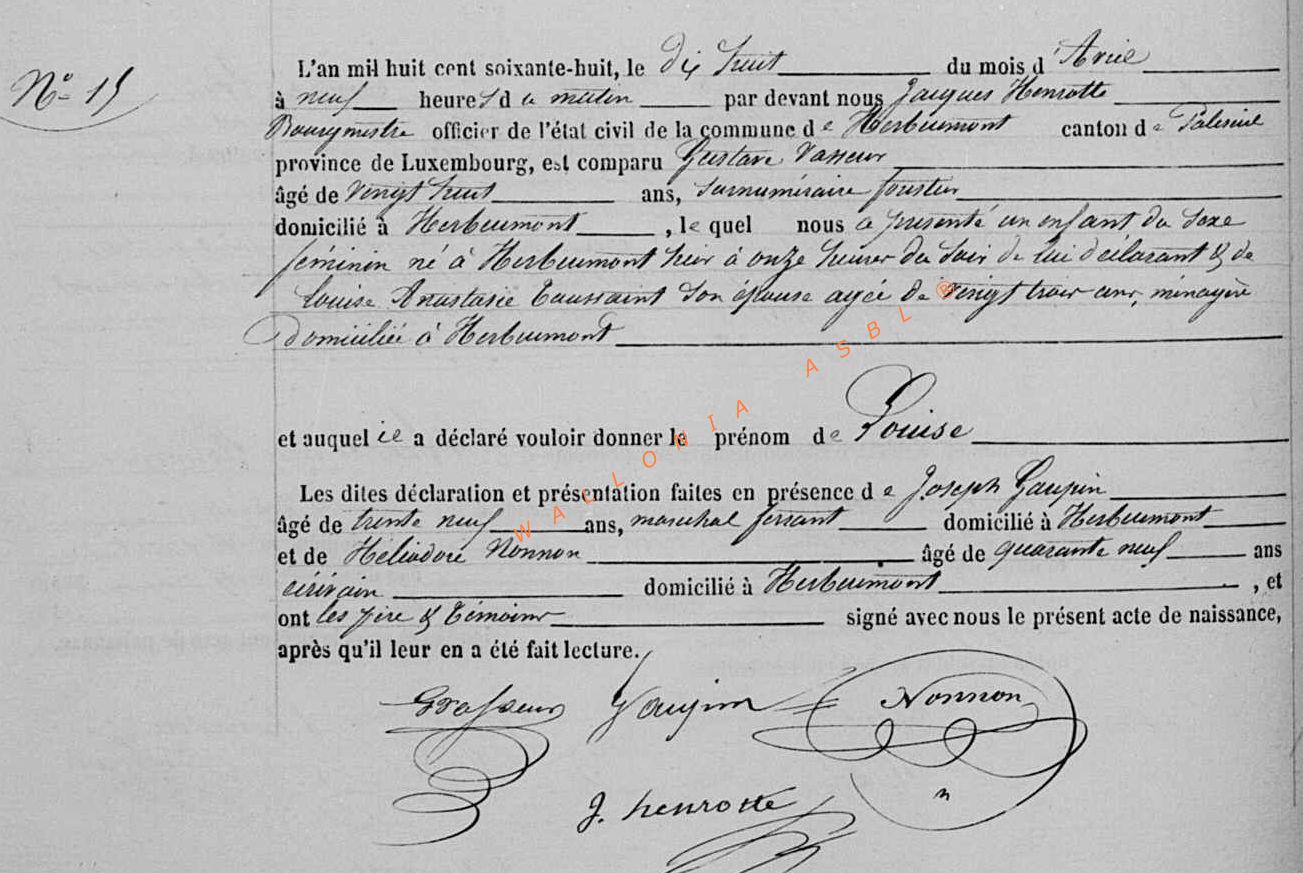 N° 15
L'an mil huit cent soixante-huit, le dix huit du mois d'Avril
à neuf heures du matin par devant nous Jacques Henrotte
Bourgmestre officier de l'état civil de la commune de Herbeumont canton de Paliseul
province de Luxembourg, est comparu Gustave Vasseur
âgé de vingt huit ans, surnuméraire
domicilié à Herbeumont, le quel nous a présenté un enfant du sexe
féminin né à Herbeumont hier à onze heures du soir de lui déclarant & de
Louise Anastasie Toussaint son épouse agée de vingt trois ans, ménagère
domiciliée à Herbeumont
et auquel il a déclaré vouloir donner le prénom de Louise
Les dites déclaration et présentation faites en présence de Joseph Gaupin
âgé de trente neuf ans, maréchal ferrant domicilié à Herbeumont
et de Héliodore Nonnon âgé de quarante neuf ans
écrivain domicilié à Herbeumont, et
ont les père & témoins signé avec nous le présent acte de naissance,
après qu'il leur en a été fait lecture.
GVasseur Gaupin Nonnon
J. henrotte
WALLONIA ASBL ®